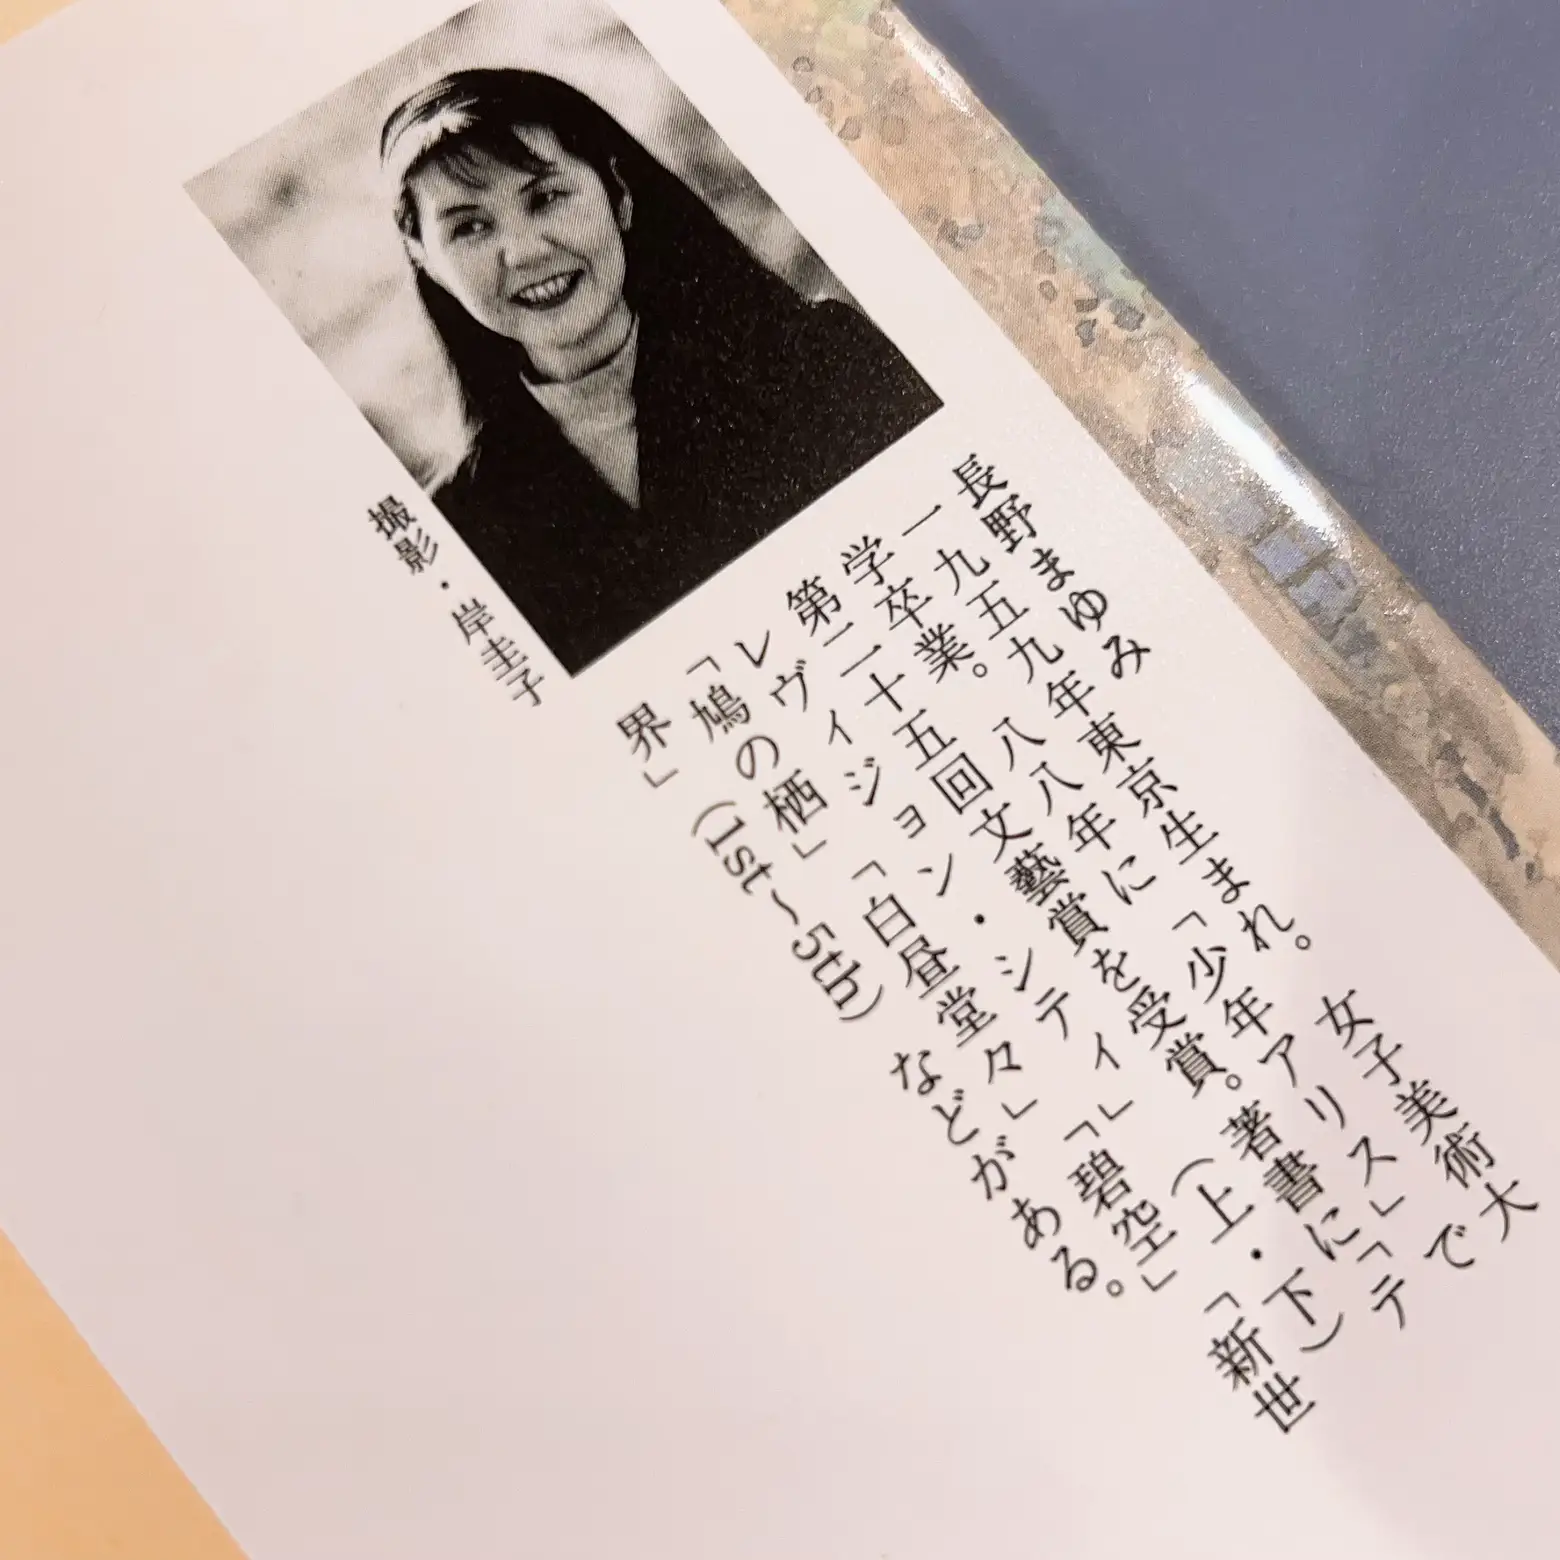 長野まゆみ
一九五九年東京生まれ。女子美術大
学卒業。八八年に「少年アリス」で
第二十五回文藝賞を受賞。著書に「テ
レヴィジョン・シティ」(上・下)
「鳩の栖」「白昼堂々」「碧空」「新世
界」(1st〜5th)などがある。
撮影・岸圭子